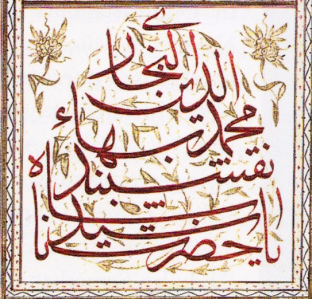 يا حضرت
سيدنا
شاه
نقشبند
محمد بهاء
الدين
البخاري